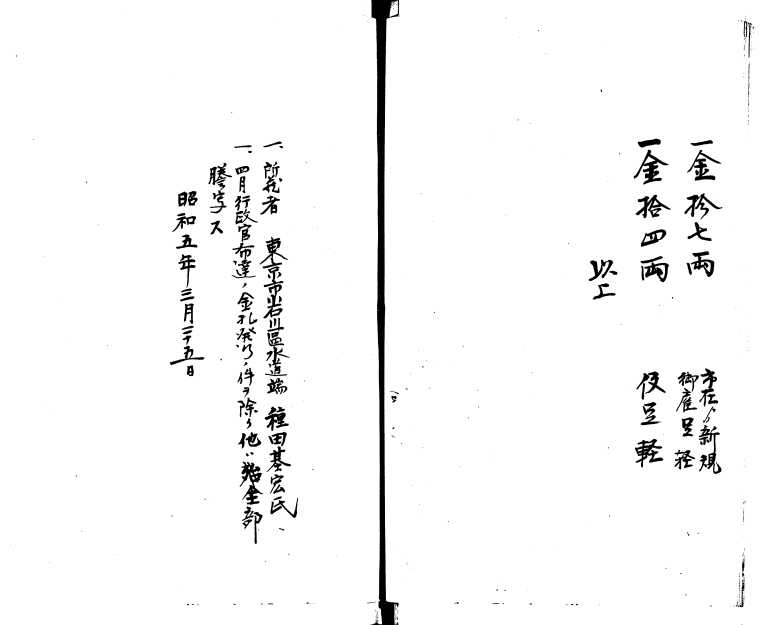 一金拾七両 市在ゟ新規
御雇足軽
一金拾四両 役足軽
以上
一、所蔵者 東京市小石川區水道端 種田基宏氏、
一、四月行政官布達ノ金札発行ノ件ヲ除ク他ハ殆全部
謄写ス
昭和五年三月二十五日